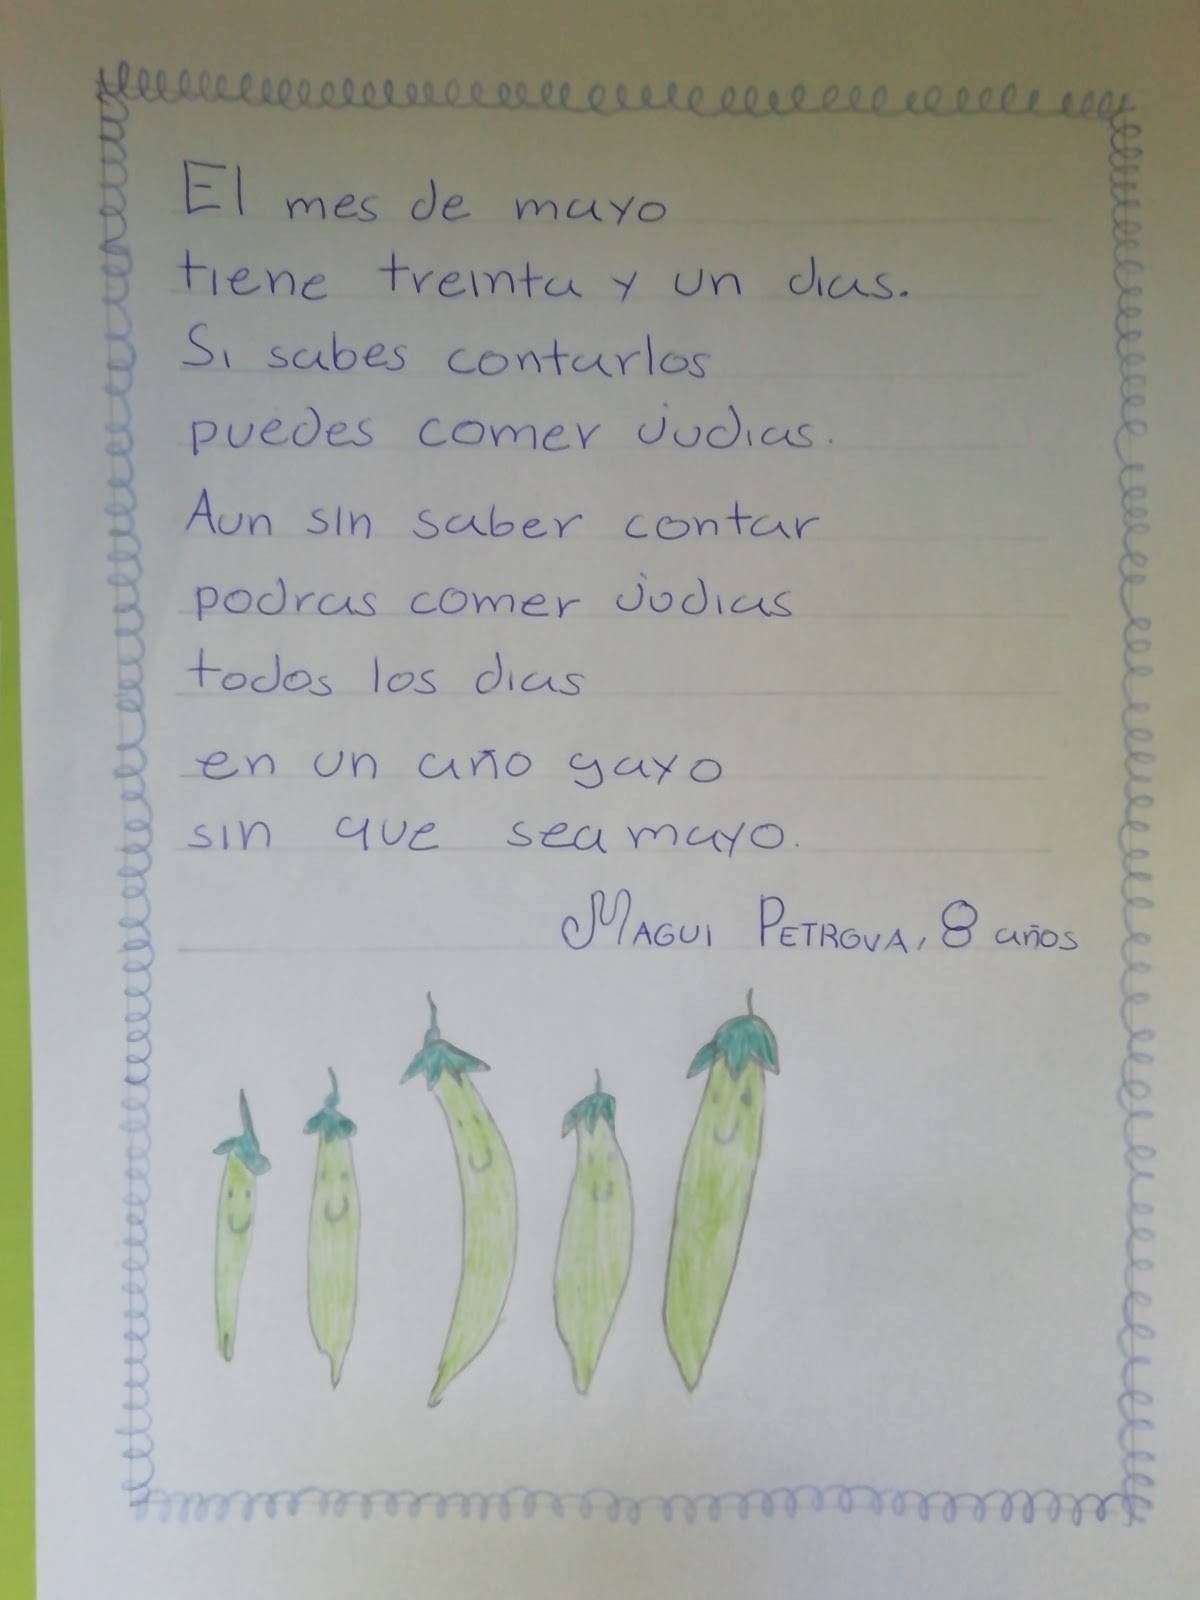 El mes de mayo
tiene treinta y un dias.
Si sabes contarlos
puedes comer judias.
Aun sin saber contar
podras comer judias
todos los dias
en un año gayo
sin que sea mayo.
MAGUI PETROVA, 8 años